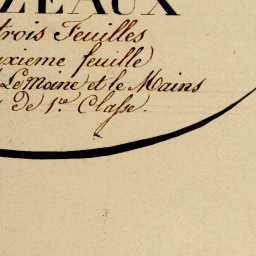 ZEAUX
trois Feuilles
uxieme feuille
Le Moine et le Mains
De 1.re Classe.